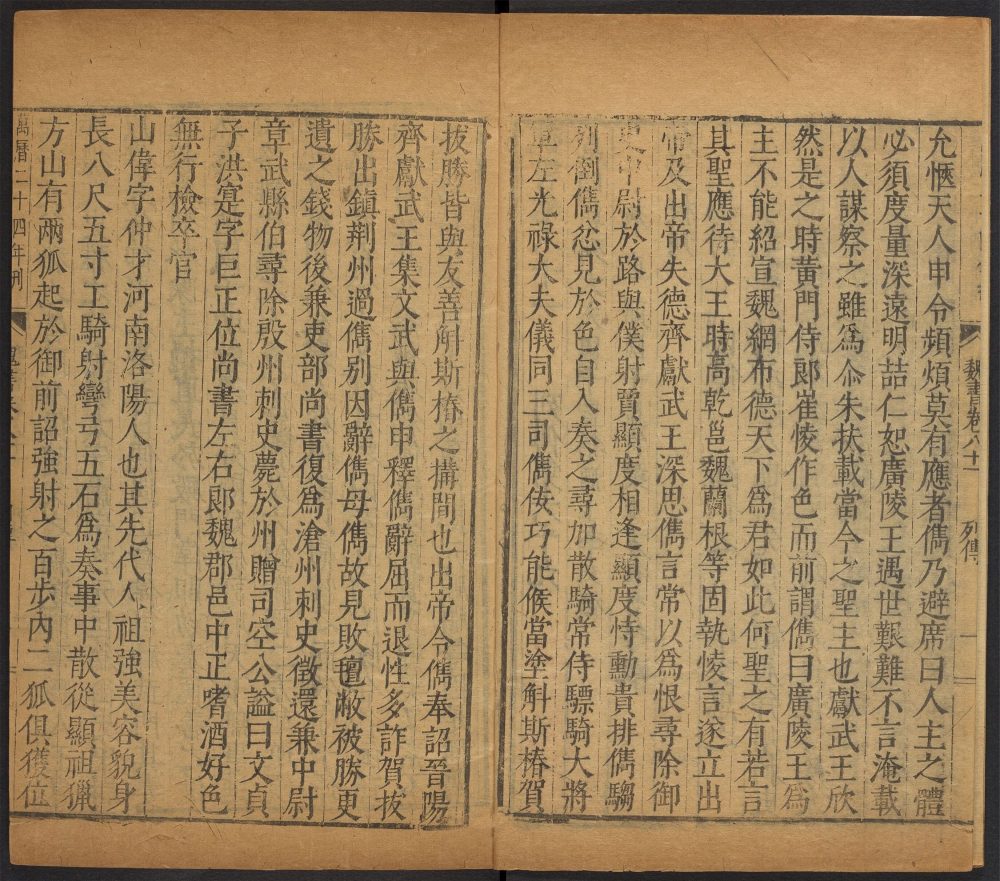 魏書卷八十一
列傳
一
允愜天人申令頻煩莫有應者儁乃避席曰人主之體
必須度量深遠明喆仁恕廣陵王遇世艱難不言淹載
以人謀察之雖爲尒朱扶載當今之聖主也獻武王欣
然是之時黄門侍郎崔㥄作色而前謂儁曰廣陵王爲
主不能紹宣魏綱布德天下爲君如此何聖之有若言
其聖應待大王時高乾邕魏蘭根等固執㥄言遂立出
帝及出帝失德齊獻武王深思儁言常以爲恨尋除御
史中尉於路與僕射賈顯度相逢顯度恃勳貴排儁騶
列倒儁忿見於色自入奏之尋加散騎常侍驃騎大將
軍左光禄大夫儀同三司儁佞巧能候當塗斛斯椿賀
拔勝皆與友善斛斯椿之搆間也出帝令儁奉詔晉陽
齊獻武王集文武與儁申釋儁辭屈而退性多詐賀拔
勝出鎮荆州過儁别因辭儁母儁故見敗氊敝被勝更
遺之錢物後兼吏部尚書復爲滄州刺史徵還兼中尉
章武縣伯尋除殷州刺史薨於州贈司空公謚曰文貞
子洪寔字巨正位尚書左右郎魏郡邑中正嗜酒好色
無行檢卒官
山偉字仲才河南洛陽人也其先代人祖強美容貌身
長八尺五寸工騎射彎弓五石爲奏事中散從顯祖獵
方山有兩狐起於御前詔強射之百步内二狐俱獲位
萬曆二十四年刊